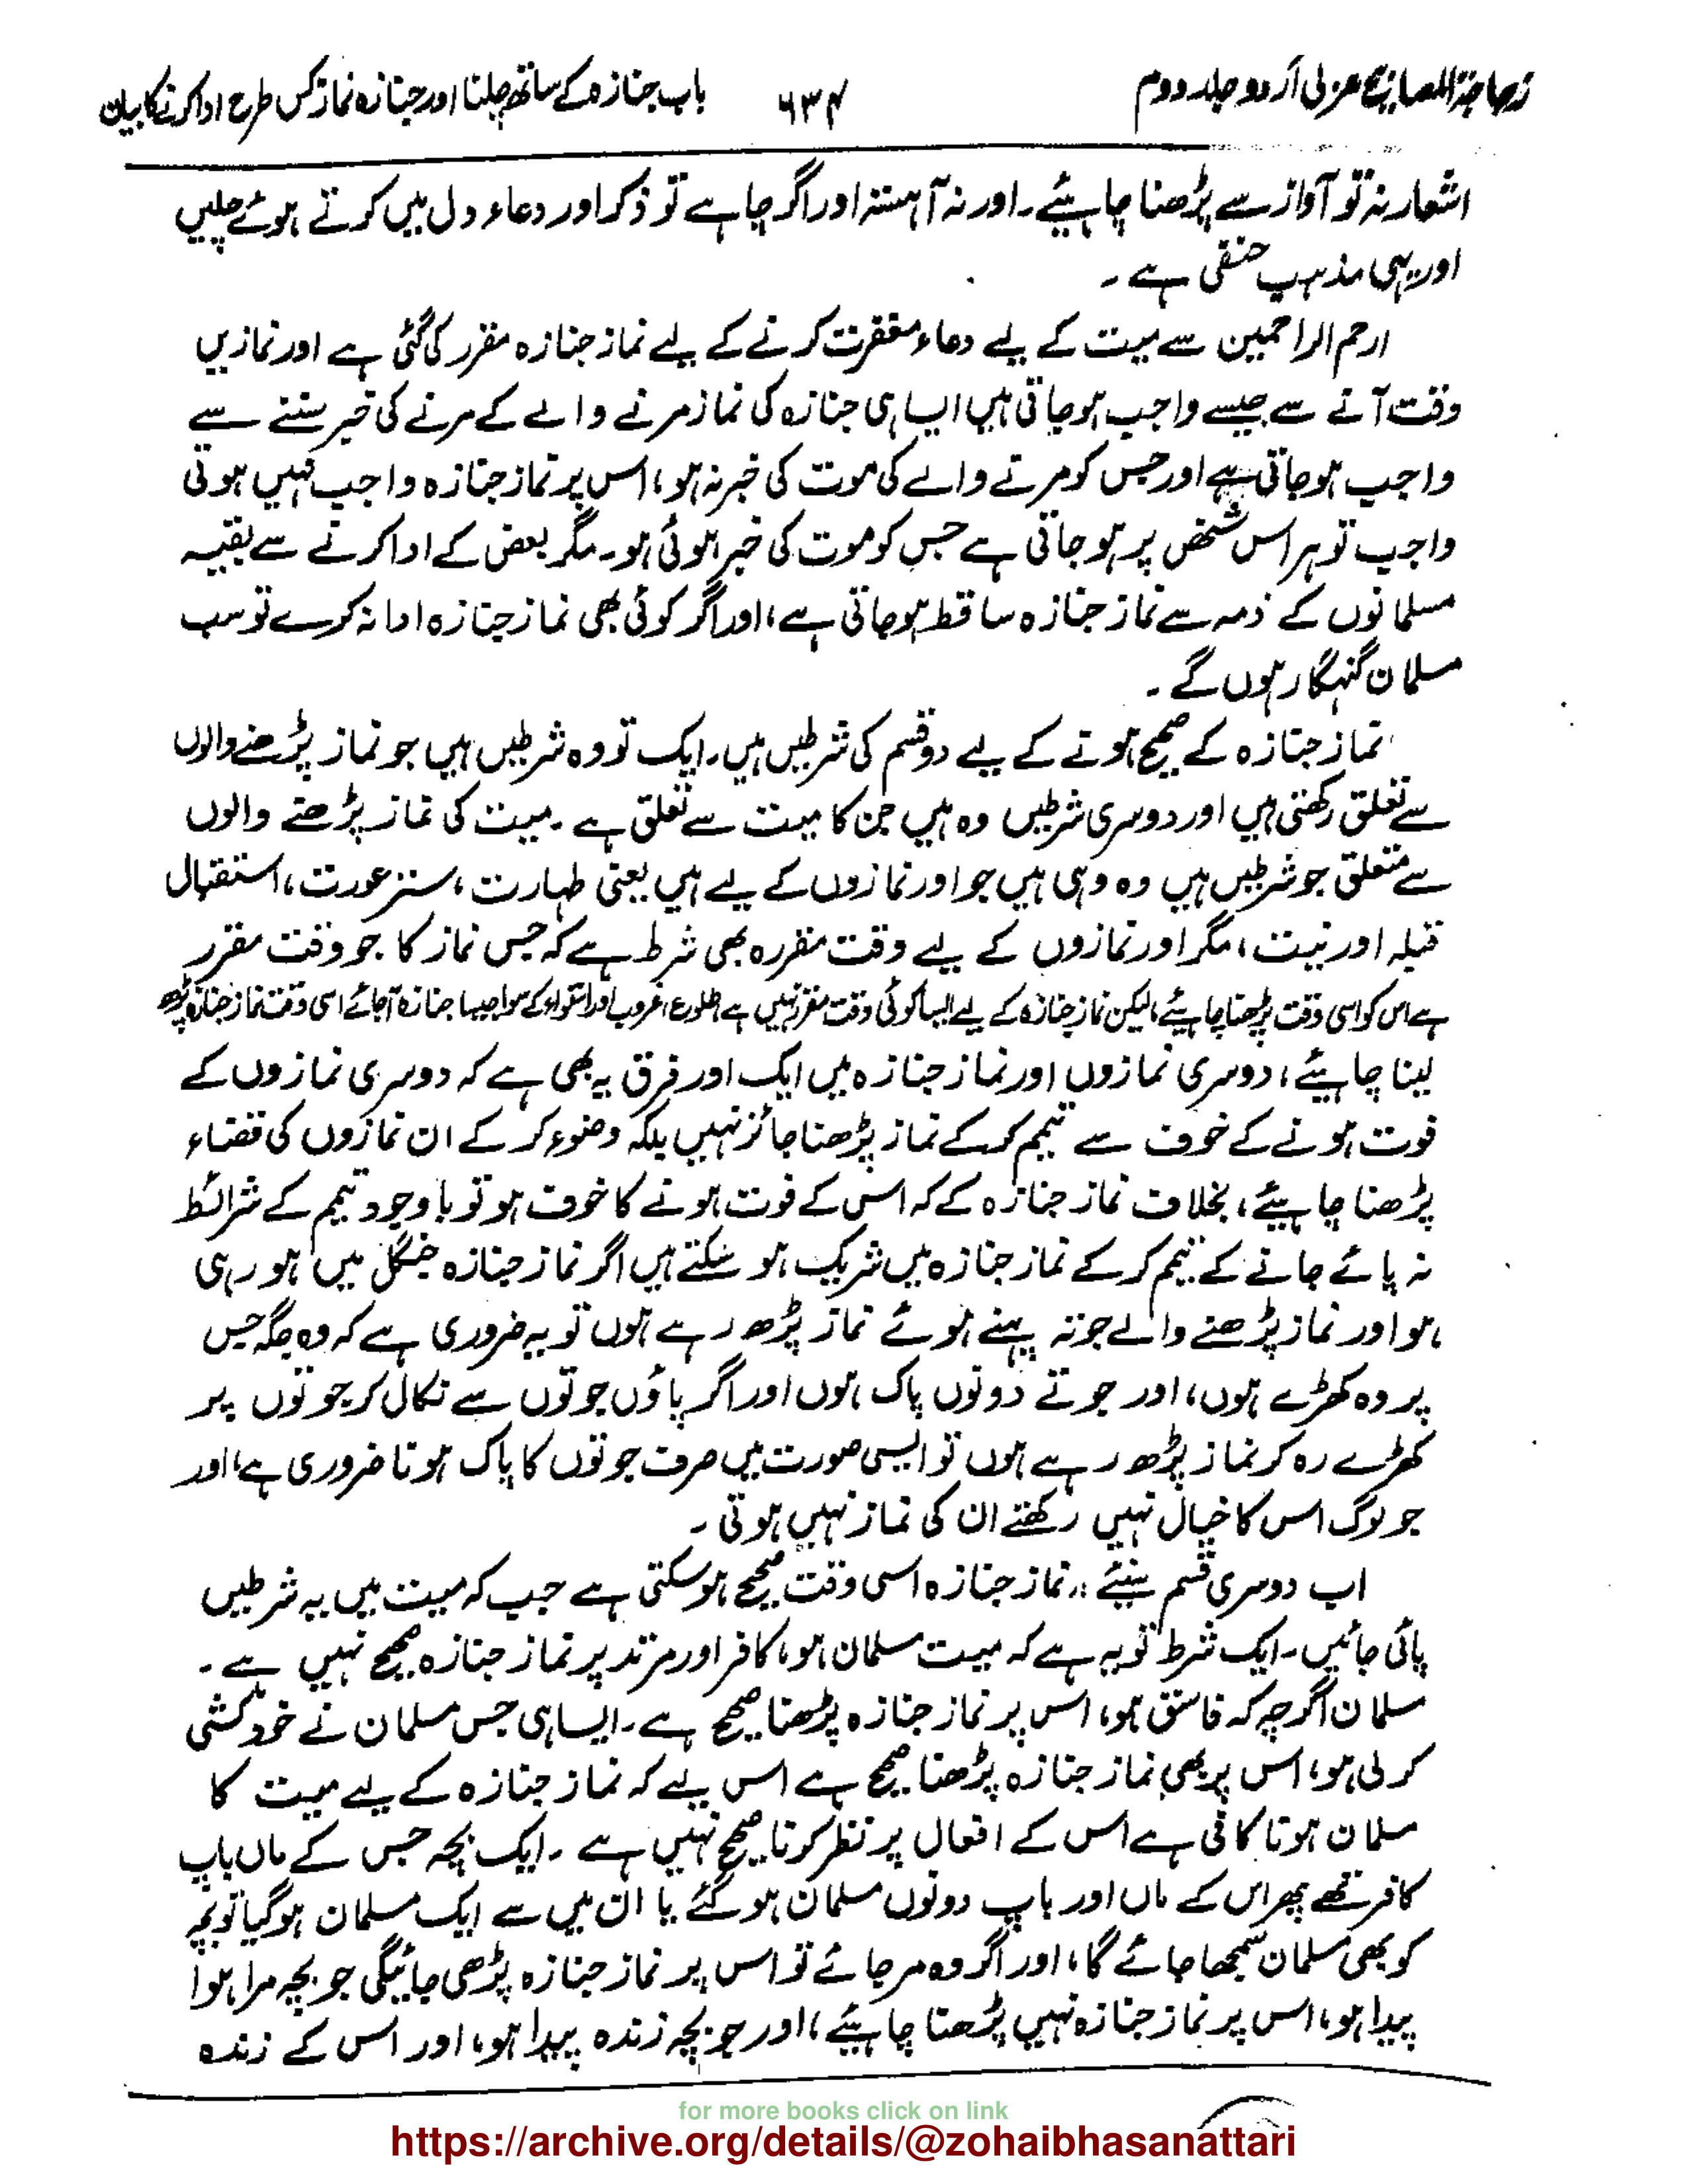 زجاجۃ المصابیح عربی اردو جلد دوم ۶۳۴ باب جنازہ کے ساتھ چلنا اور جنازہ نماز کس طرح ادا کرنیکا بیان
اشعار نہ تو آواز سے پڑھنا چاہیئے۔ اور نہ آہستہ اور اگر چاہے تو ذکر اور دعاء دل میں کرتے ہوئے چلیں
اور یہی مذہب حنفی ہے۔
ارحم الراحمین سے میت کے لیے دعاء مغفرت کرنے کے لیے نماز جنازہ مقرر کی گئی ہے اور نمازیں
وقت آنے سے جیسے واجب ہو جاتی ہیں ایسا ہی جنازہ کی نماز مرنے والے کے مرنے کی خبر سننے سے
واجب ہو جاتی ہے اور جس کو مرنے والے کی موت کی خبر نہ ہو، اس پر نماز جنازہ واجب نہیں ہوتی
واجب تو ہر اس شخص پر ہو جاتی ہے جس کو موت کی خبر ہوئی ہو۔ مگر بعض کے ادا کرنے سے بقیہ
مسلمانوں کے ذمہ سے نماز جنازہ ساقط ہو جاتی ہے، اور اگر کوئی بھی نماز جنازہ ادا نہ کرے تو سب
مسلمان گنہگار ہوں گے۔
نماز جنازہ کے صحیح ہونے کے لیے دو قسم کی شرطیں ہیں۔ ایک تو وہ شرطیں ہیں جو نماز پڑھنے والوں
سے تعلق رکھتی ہیں اور دوسری شرطیں وہ ہیں جن کا میت سے تعلق ہے۔ میت کی نماز پڑھنے والوں
سے متعلق جو شرطیں ہیں وہ وہی ہیں جو اور نمازوں کے لیے ہیں یعنی طہارت، ستر عورت، استقبال
قبلہ اور نیت، مگر اور نمازوں کے لیے وقت مقررہ بھی شرط ہے کہ جس نماز کا جو وقت مقرر
ہے اس کو اسی وقت پڑھنا چاہیئے، لیکن نماز جنازہ کے لیے ایسا کوئی وقت مقرر نہیں ہے طلوع، غروب اور استواء کے سوا جیسا جنازہ آجائے اسی وقت نماز جنازہ پڑھ
لینا چاہیئے، دوسری نمازوں اور نماز جنازہ میں ایک اور فرق یہ بھی ہے کہ دوسری نمازوں کے
فوت ہونے کے خوف سے تیمم کر کے نماز پڑھنا جائز نہیں بلکہ وضوء کر کے ان نمازوں کی قضاء
پڑھنا چاہیئے، بخلاف نماز جنازہ کے کہ اس کے فوت ہونے کا خوف ہو تو باوجود تیمم کے شرائط
نہ پائے جانے کے تیمم کر کے نماز جنازہ میں شریک ہو سکتے ہیں اگر نماز جنازہ جنگل میں ہو رہی
ہو اور نماز پڑھنے والے جوتہ پہنے ہوئے نماز پڑھ رہے ہوں تو یہ ضروری ہے کہ وہ جگہ جس
پر وہ کھڑے ہوں، اور جوتے دونوں پاک ہوں اور اگر پاؤں جوتوں سے نکال کر جوتوں پر
کھڑے رہ کر نماز پڑھ رہے ہوں تو ایسی صورت میں صرف جوتوں کا پاک ہونا ضروری ہے، اور
جو لوگ اس کا خیال نہیں رکھتے ان کی نماز نہیں ہوتی۔
اب دوسری قسم سنیئے :۔ نماز جنازہ اسی وقت صحیح ہو سکتی ہے جب کہ میت میں یہ شرطیں
پائی جائیں۔ ایک شرط تو یہ ہے کہ میت مسلمان ہو، کافر اور مرتد پر نماز جنازہ صحیح نہیں ہے۔
مسلمان اگرچہ کہ فاسق ہو، اس پر نماز جنازہ پڑھنا صحیح ہے۔ ایسا ہی جس مسلمان نے خودکشی
کر لی ہو، اس پر بھی نماز جنازہ پڑھنا صحیح ہے اس لیے کہ نماز جنازہ کے لیے میت کا
مسلمان ہونا کافی ہے اس کے افعال پر نظر کرنا صحیح نہیں ہے۔ ایک بچہ جس کے ماں باپ
کافر تھے پھر اس کے ماں اور باپ دونوں مسلمان ہو گئے یا ان میں سے ایک مسلمان ہو گیا تو بچہ
کو بھی مسلمان سمجھا جائے گا، اور اگر وہ مر جائے تو اس پر نماز جنازہ پڑھی جائیگی جو بچہ مرا ہوا
پیدا ہو، اس پر نماز جنازہ نہیں پڑھنا چاہیئے، اور جو بچہ زندہ پیدا ہو، اور اس کے زندہ
for more books click on link
https://archive.org/details/@zohaibhasanattari